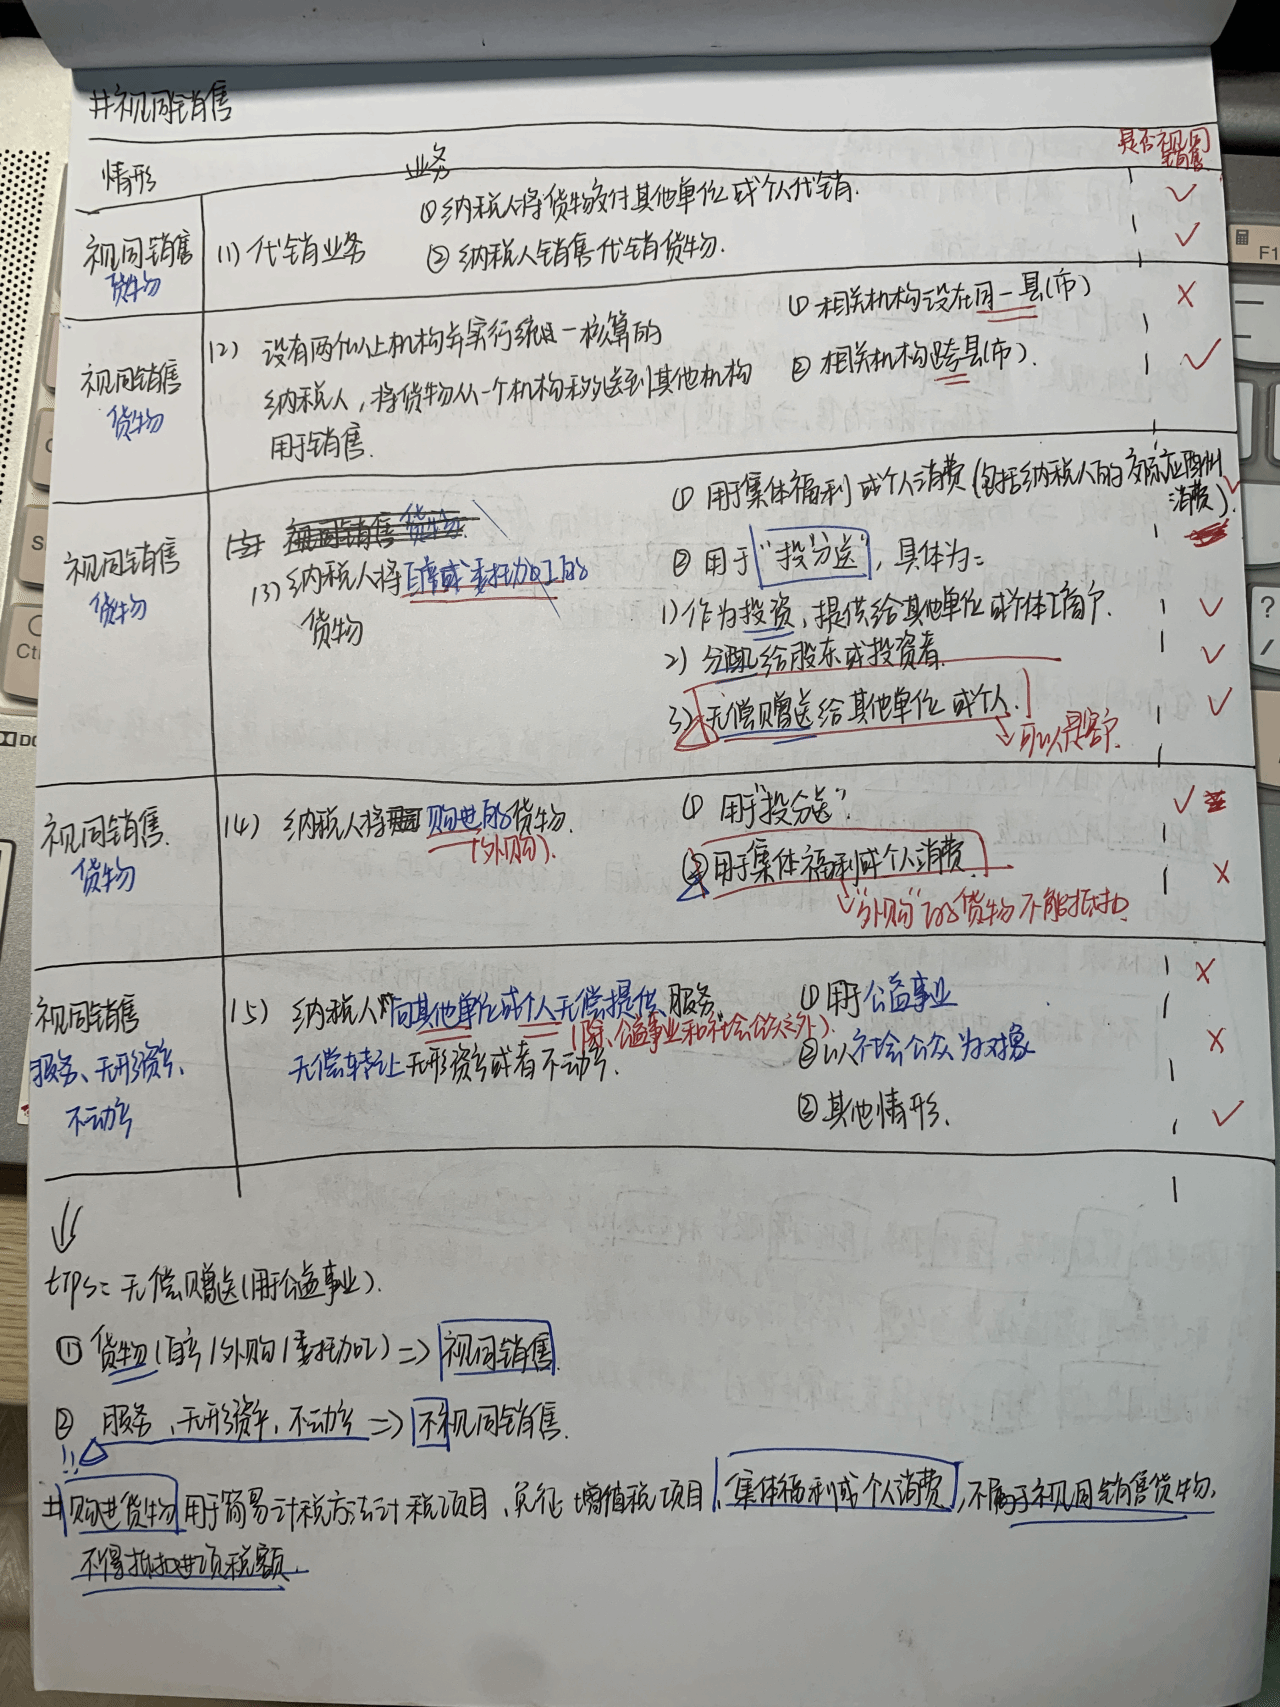 #视同销售
情形 业务 是否视同销售
视同销售货物 (1) 代销业务 ① 纳税人将货物交付其他单位或个人代销. ✓
② 纳税人销售代销货物. ✓
视同销售货物 (2) 设有两个以上机构并实行统一核算的
纳税人,将货物从一个机构移送到其他机构
用于销售.
① 相关机构设在同一县(市) ×
② 相关机构跨县(市). ✓
视同销售货物 (3) 纳税人将自产或委托加工的
货物
① 用于集体福利或个人消费(包括纳税人的交际应酬
消费). ✓
② 用于"投分送",具体为:
1) 作为投资,提供给其他单位或个体工商户. ✓
2) 分配给股东或投资者. ✓
3) 无偿赠送给其他单位或个人. ✓
→可以是客户.
视同销售货物 (4) 纳税人将购进的货物.
(外购).
① 用于"投分送". ✓
② 用于集体福利或个人消费. ×
"外购"的货物不能抵扣.
视同销售
服务、无形资产、
不动产
(5) 纳税人"向其他单位或个人无偿提供服务"
(除公益事业和社会公众之外).
无偿转让无形资产或者不动产.
① 用于公益事业 ×
② 以社会公众为对象 ×
③ 其他情形. ✓
tips: 无偿赠送(用于公益事业).
① 货物(自产/外购/委托加工) => 视同销售.
② 服务、无形资产、不动产 => 不视同销售.
!!
#购进货物用于简易计税方法计税项目、免征增值税项目、集体福利或个人消费,不属于视同销售货物,
不得抵扣进项税额.
F1
?
/
Ctrl